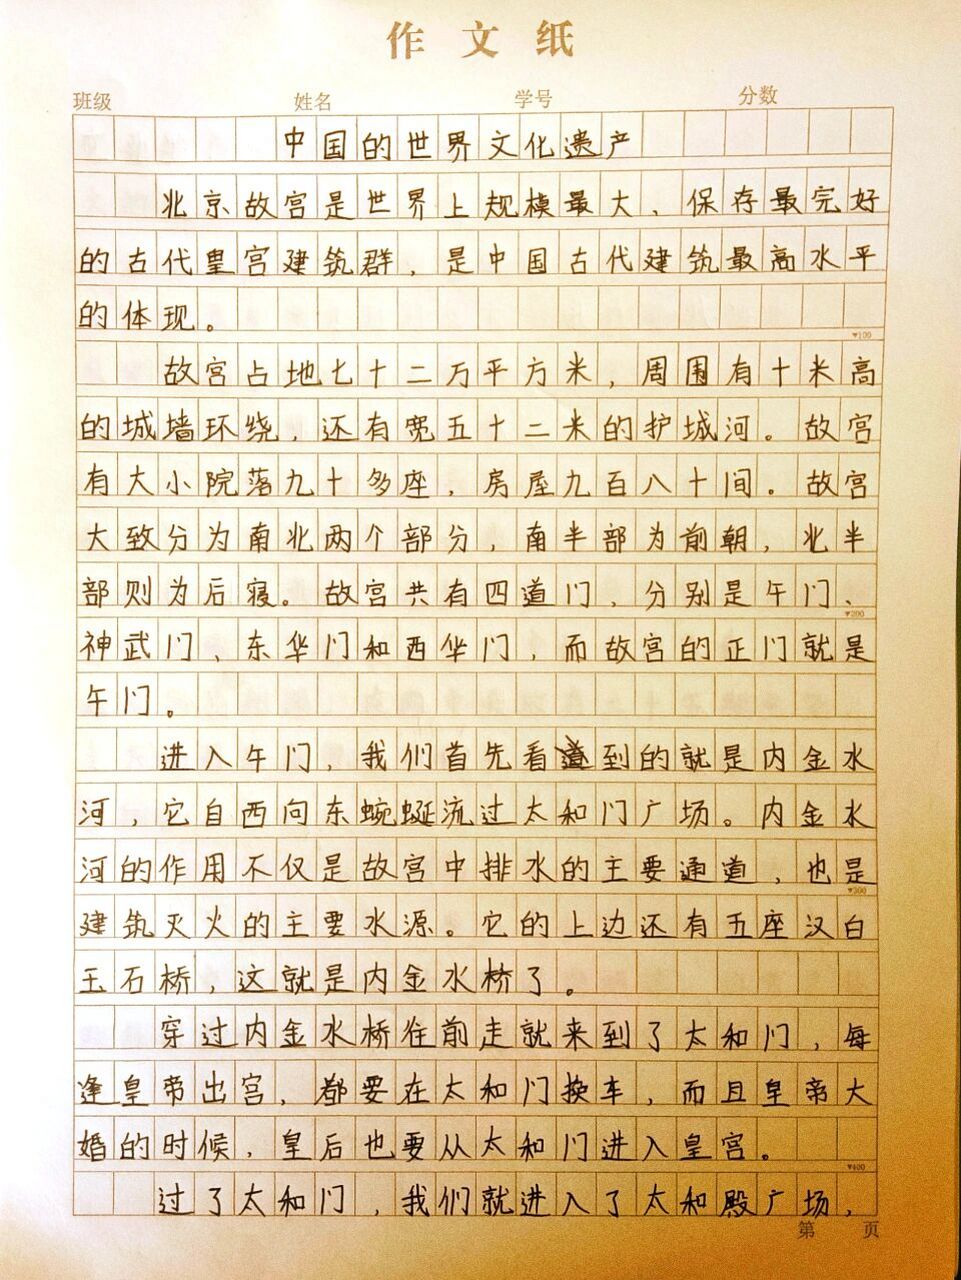 作文纸
班级 姓名 学号 分数
中国的世界文化遗产
北京故宫是世界上规模最大、保存最完好
的古代皇宫建筑群，是中国古代建筑最高水平
的体现。
▼100
故宫占地七十二万平方米，周围有十米高
的城墙环绕，还有宽五十二米的护城河。故宫
有大小院落九十多座，房屋九百八十间。故宫
大致分为南北两个部分，南半部为前朝，北半
部则为后寝。故宫共有四道门，分别是午门、
▼200
神武门、东华门和西华门，而故宫的正门就是
午门。
进入午门，我们首先看到的就是内金水
河，它自西向东蜿蜒流过太和门广场。内金水
河的作用不仅是故宫中排水的主要通道，也是
▼300
建筑灭火的主要水源。它的上边还有五座汉白
玉石桥，这就是内金水桥了。
穿过内金水桥往前走就来到了太和门，每
逢皇帝出宫，都要在太和门换车，而且皇帝大
婚的时候，皇后也要从太和门进入皇宫。
▼400
过了太和门，我们就进入了太和殿广场，
第 页